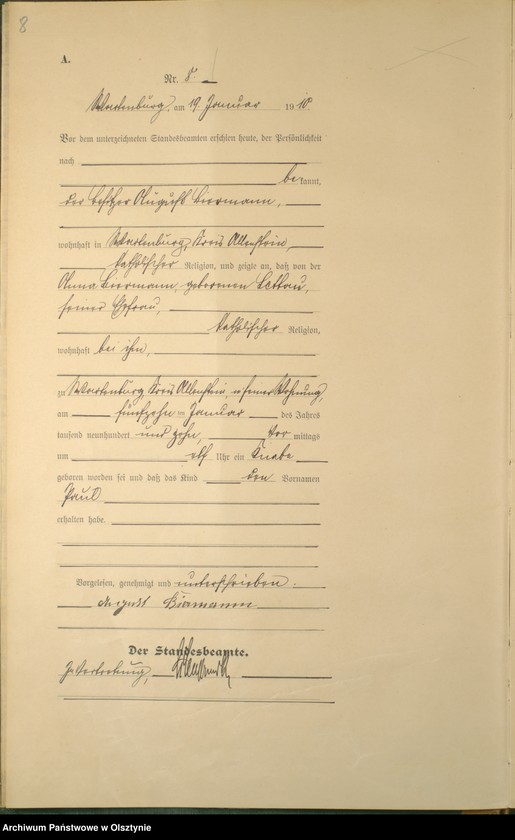 8
A.
Nr. 8
Wartenburg, am 19. Januar 1910.
Vor dem unterzeichneten Standesbeamten erschien heute, der Persönlichkeit
nach
bekannt,
der Besitzer August Biermann,
wohnhaft in Wartenburg, Kreis Allenstein,
katholischer Religion, und zeigte an, daß von der
Anna Biermann, geborenen Lettau,
seiner Ehefrau,
katholischer Religion,
wohnhaft bei ihm,
zu Wartenburg Kreis Allenstein, in seiner Wohnung,
am fünfzehnten Januar des Jahres
tausend neunhundert und zehn, vor mittags
um elf Uhr ein Knabe
geboren worden sei und daß das Kind den Vornamen
Paul
erhalten habe.
Vorgelesen, genehmigt und unterschrieben.
August Biermann
Der Standesbeamte.
In Vertretung,
Archiwum Państwowe w Olsztynie